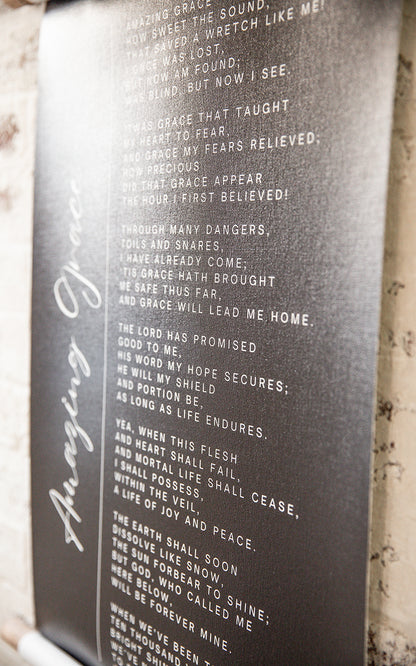 Amazing Grace
AMAZING GRACE
HOW SWEET THE SOUND,
THAT SAVED A WRETCH LIKE ME!
ONCE WAS LOST,
BUT NOW AM FOUND;
WAS BLIND, BUT NOW I SEE.
'TWAS GRACE THAT TAUGHT
MY HEART TO FEAR,
AND GRACE MY FEARS RELIEVED;
HOW PRECIOUS
DID THAT GRACE APPEAR
THE HOUR I FIRST BELIEVED!
THROUGH MANY DANGERS,
TOILS AND SNARES,
I HAVE ALREADY COME;
'TIS GRACE HATH BROUGHT
ME SAFE THUS FAR,
AND GRACE WILL LEAD ME HOME.
THE LORD HAS PROMISED
GOOD TO ME,
HIS WORD MY HOPE SECURES;
HE WILL MY SHIELD
AND PORTION BE,
AS LONG AS LIFE ENDURES.
YEA, WHEN THIS FLESH
AND HEART SHALL FAIL,
AND MORTAL LIFE SHALL CEASE,
I SHALL POSSESS,
WITHIN THE VEIL,
A LIFE OF JOY AND PEACE.
THE EARTH SHALL SOON
DISSOLVE LIKE SNOW,
THE SUN FORBEAR TO SHINE;
BUT GOD, WHO CALLED ME
HERE BELOW,
WILL BE FOREVER MINE.
WHEN WE'VE BEEN
TEN THOUSAND
BRIGHT
WE'VE